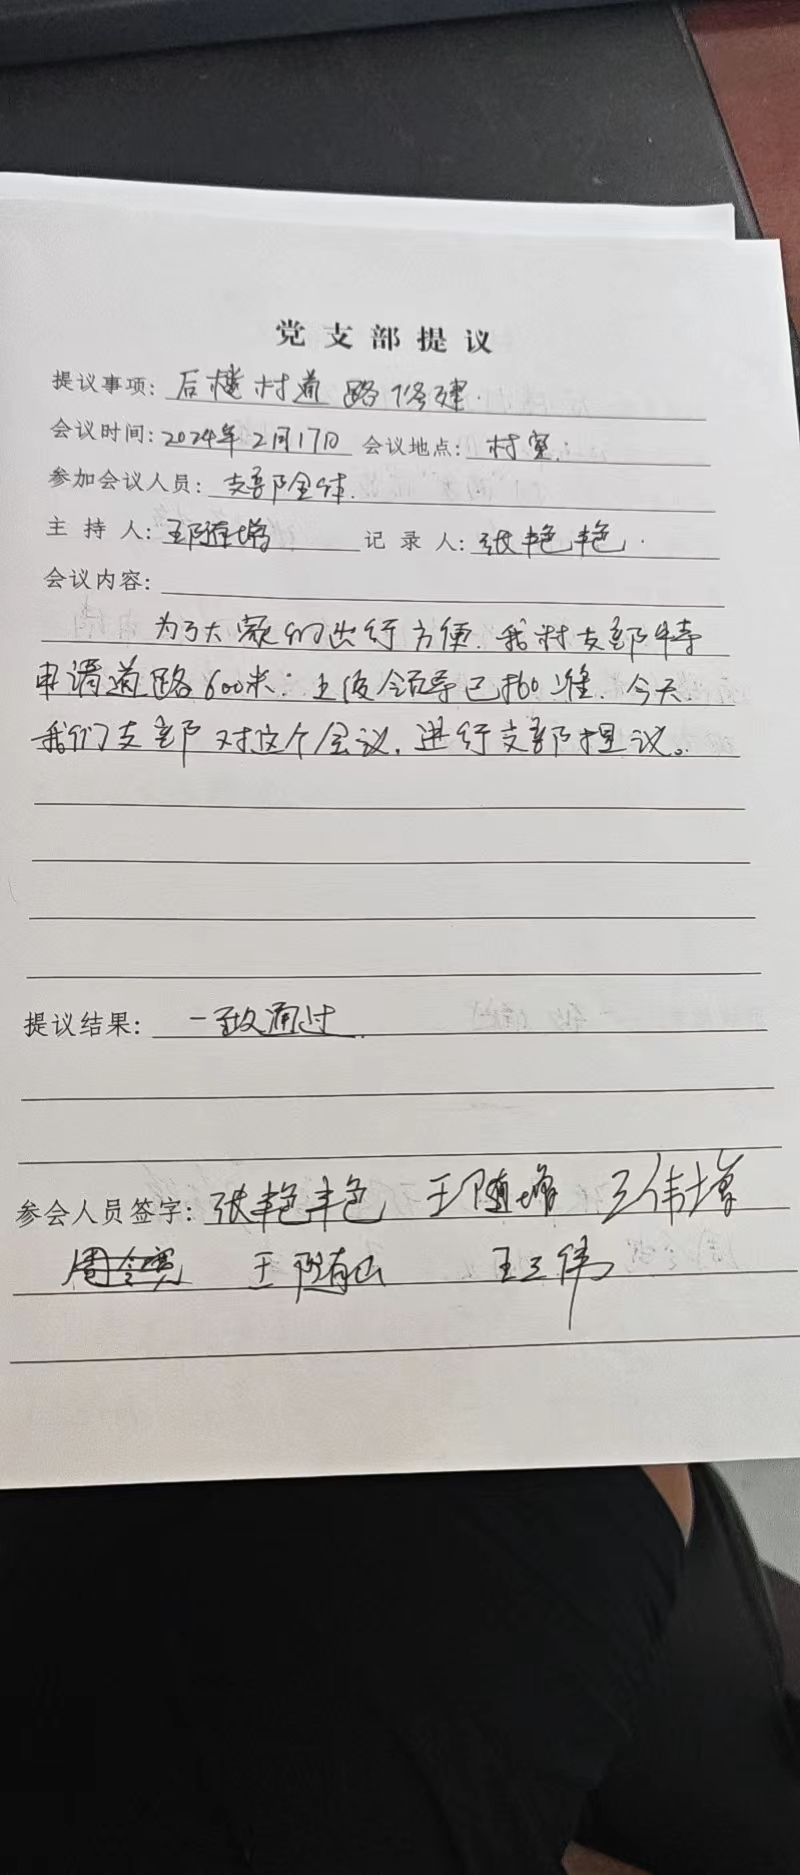 党支部提议
提议事项: 后楼村道路修建.
会议时间: 2024年2月17日 会议地点: 村室.
参加会议人员: 支部全体.
主持人: 王随增 记录人: 张艳艳.
会议内容:
为了大家们出行方便.我村支部特
申请道路600米;上级领导已批准.今天
我们支部对这个会议,进行支部提议。
提议结果: 一致通过.
参会人员签字: 张艳艳 王随增 王伟增
王随山 王三伟